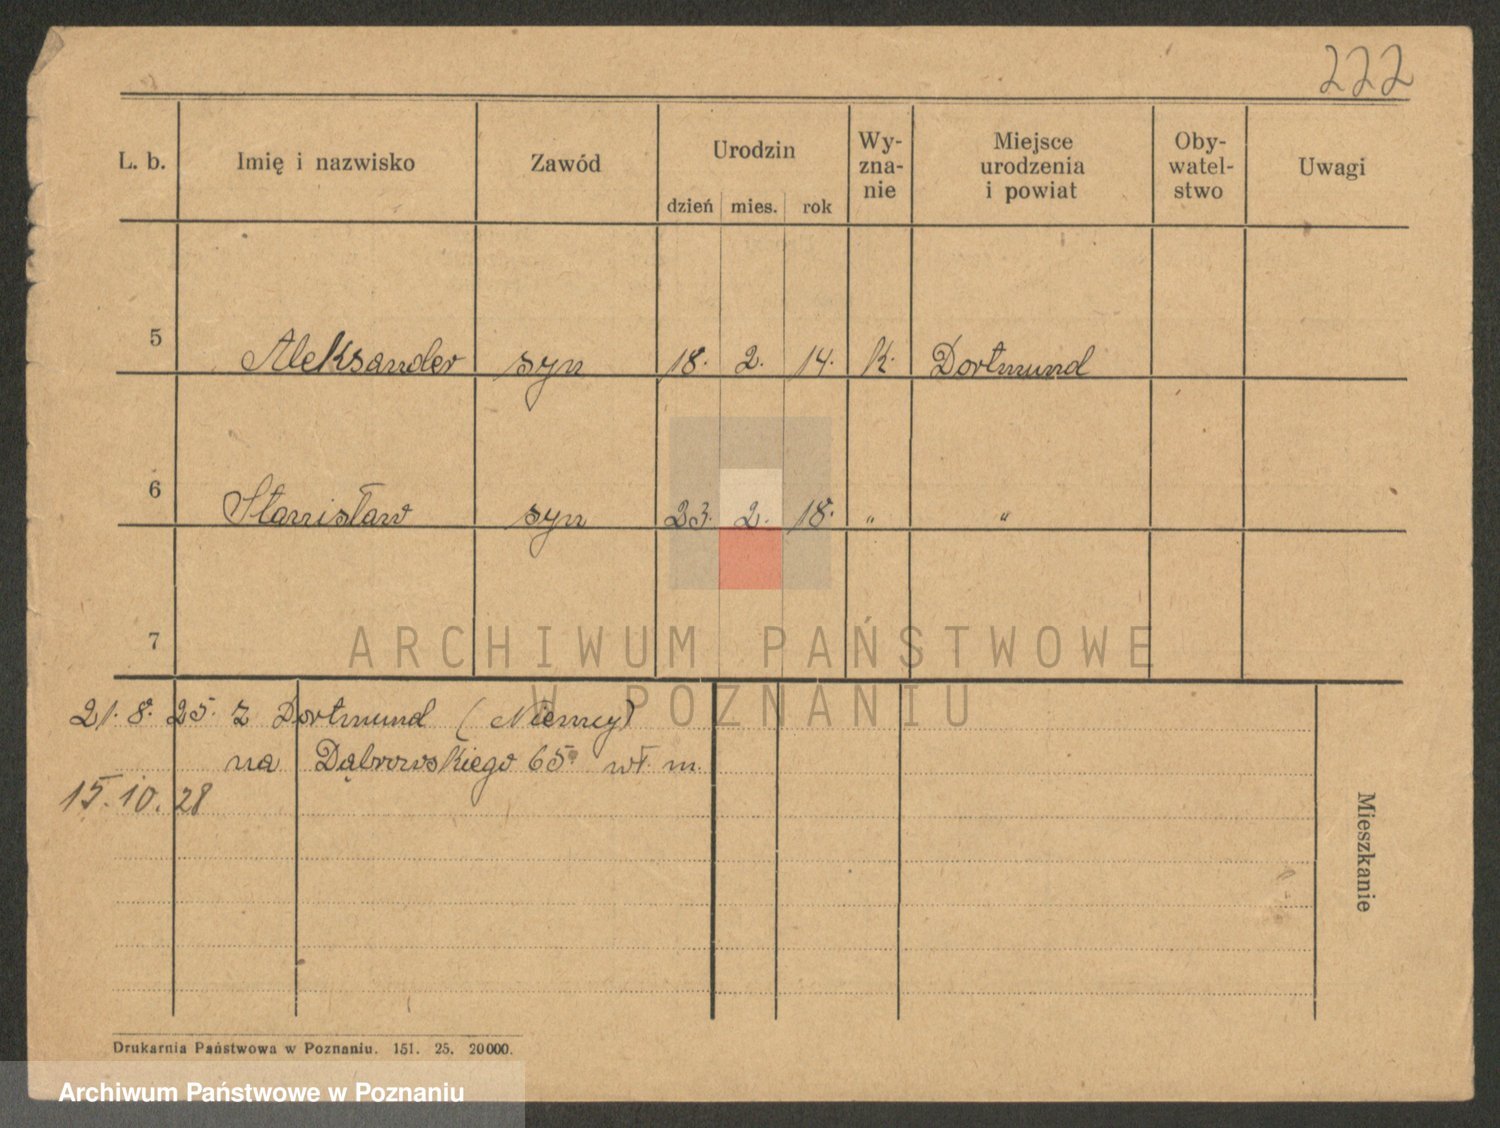 222
L. b. Imię i nazwisko Zawód Urodzin dzień mies. rok Wy-zna-nie Miejsce urodzenia i powiat Oby-watel-stwo Uwagi
5 Aleksander syn 18. 2. 14. k. Dortmund
6 Stanisław syn 23. 2. 18. " "
7
ARCHIWUM PAŃSTWOWE
W POZNANIU
21. 8. 25. z Dortmund (Niemcy)
na Dąbrowskiego 65 wł. m.
15. 10. 28
Mieszkanie
Drukarnia Państwowa w Poznaniu. 151. 25. 20000.
Archiwum Państwowe w Poznaniu